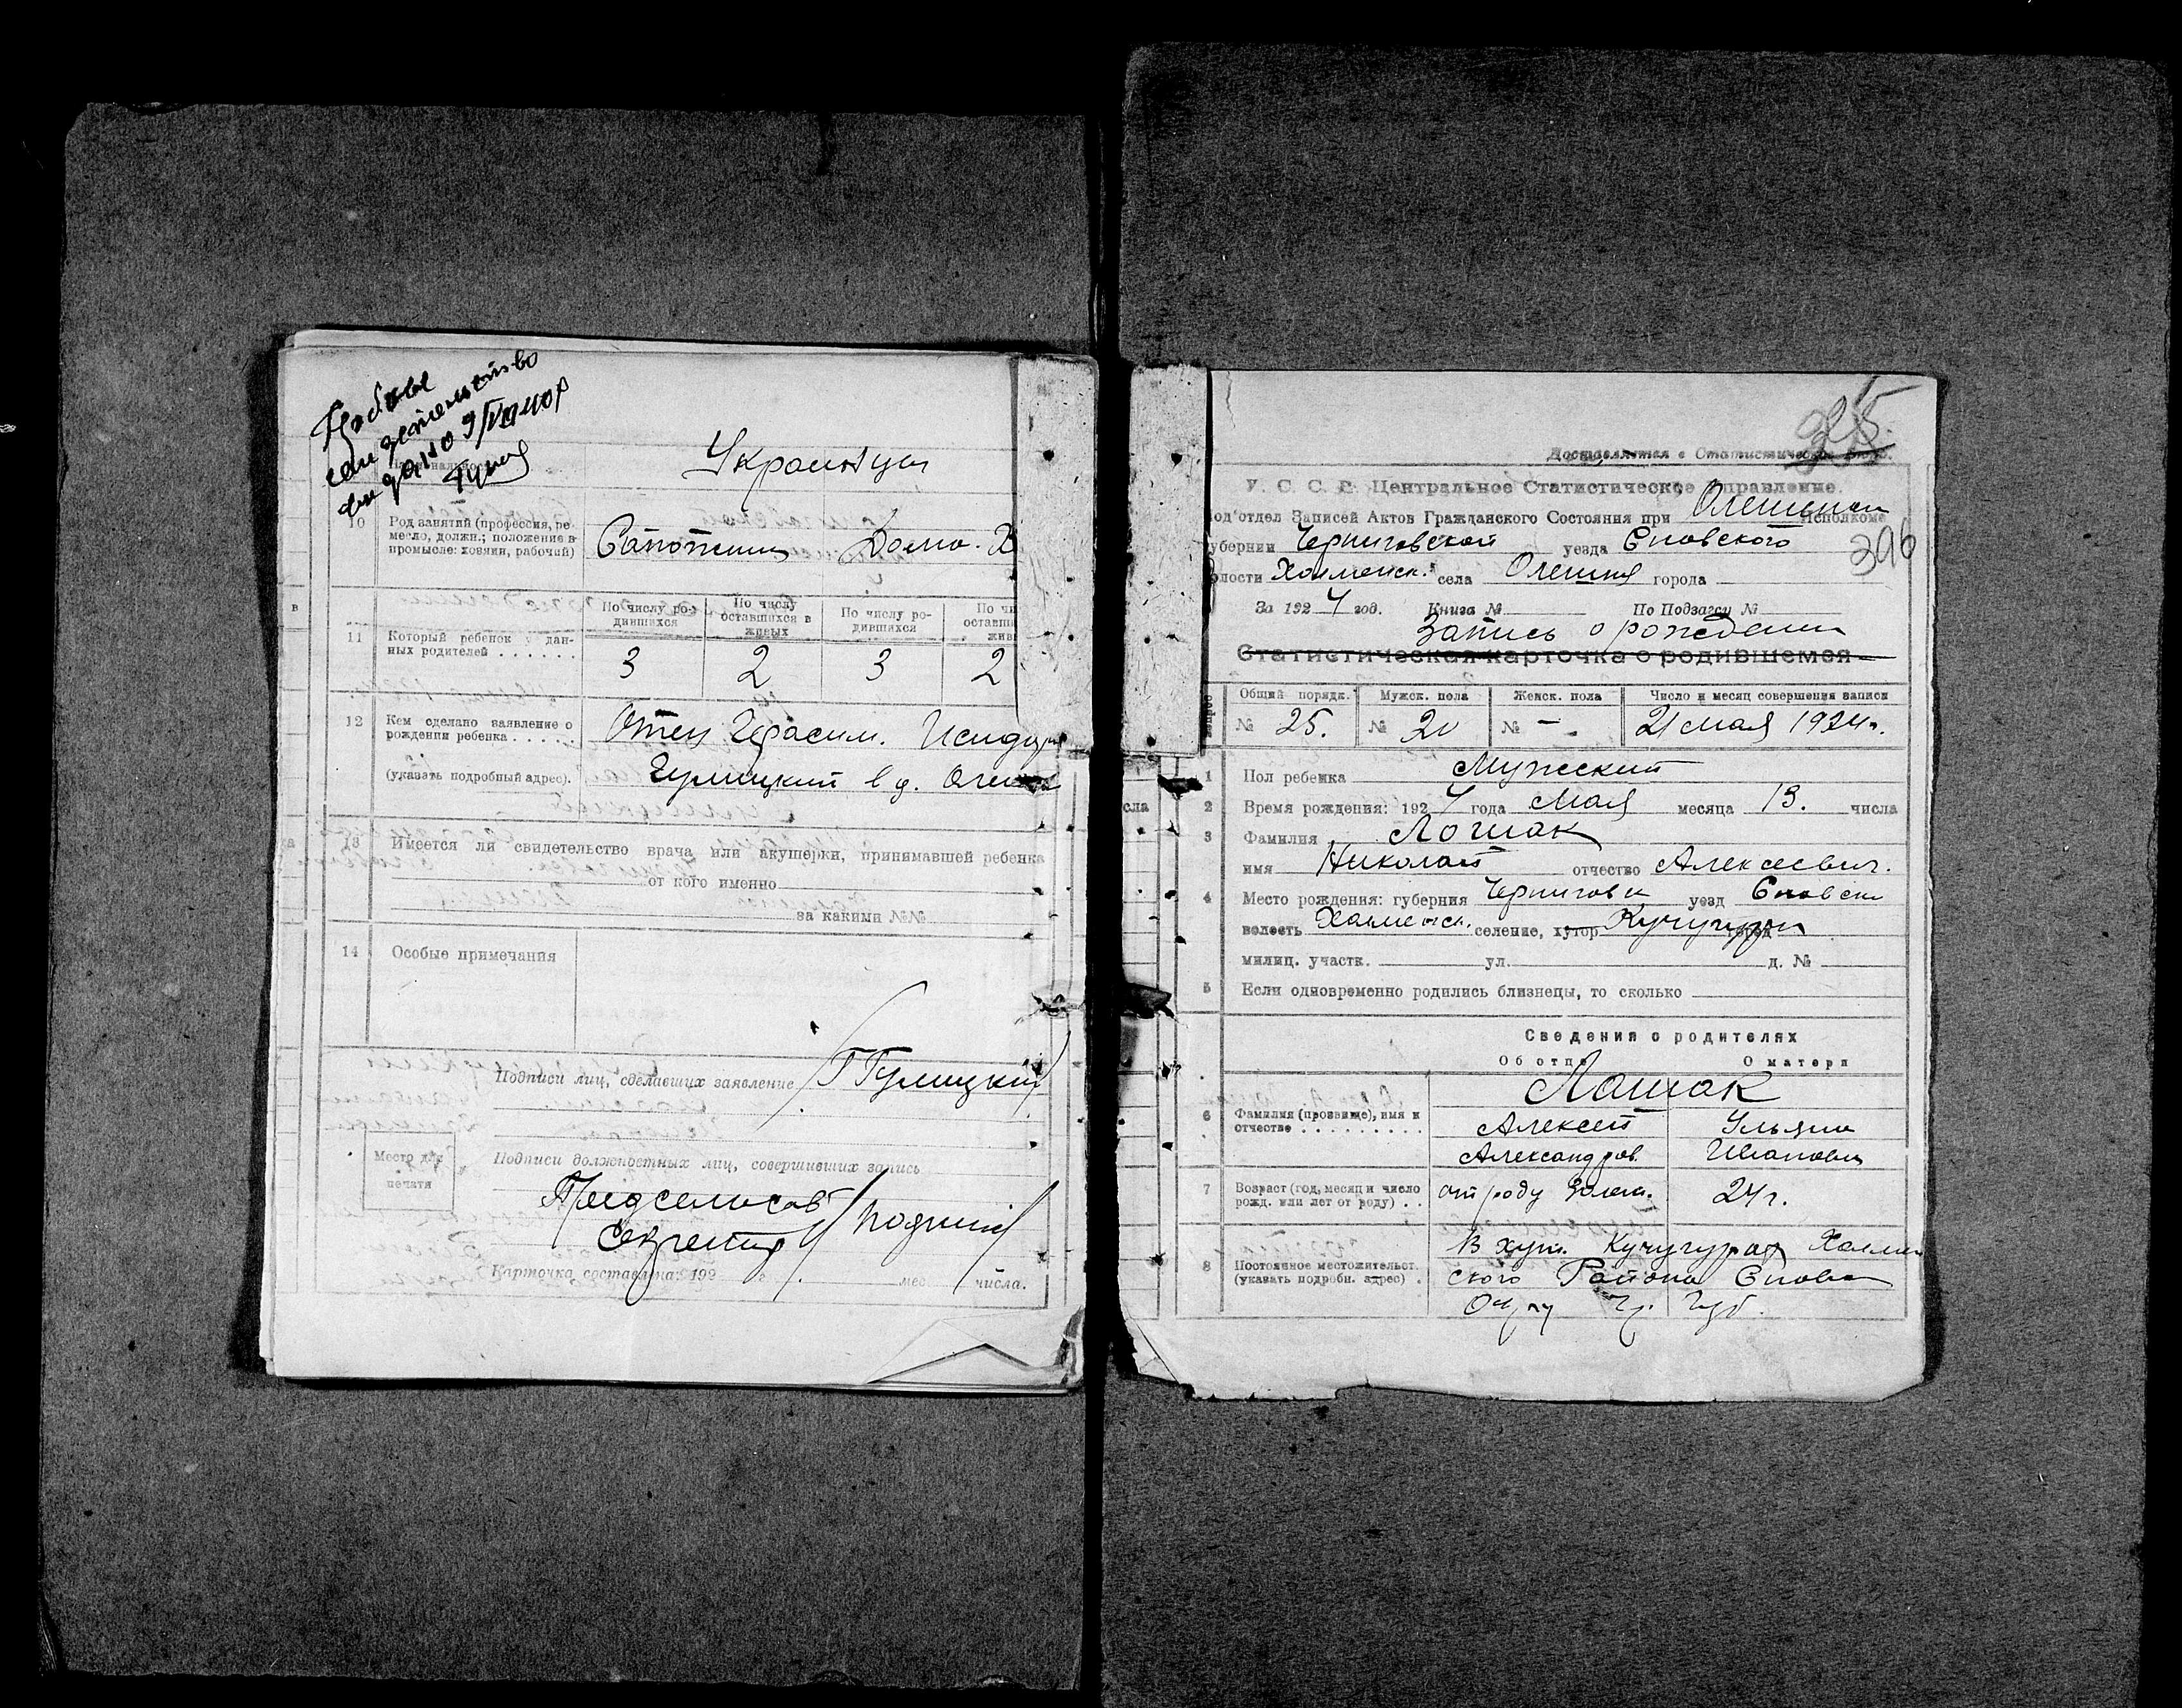 свидетельство
Украинцы
10 Род занятий (профессия, ремесло, должн.; положение в промысле: хозяин, рабочий)
Сапожник Домо. Х
По числу родившихся
По числу оставшихся в живых
По числу родившихся
11 Который ребенок у данных родителей . . . . . .
3 2 3 2
12 Кем сделано заявление о рождении ребенка . . . . .
Отец Герасим.
(указать подробный адрес).
Гулицкий в д.
13 Имеется ли свидетельство врача или акушерки, принимавшей ребенка
от кого именно
за какими №№
14 Особые примечания
Подписи лиц, сделавших заявление Г Гулицкий
Подписи должностных лиц, совершивших запись
Место для печати
Предсельсов
Секретар
Карточка составлена: 192 г. мес. числа.
Доставляется в Статистическое
396
У. С. С. Р. Центральное Статистическое Управление.
Под'отдел Записей Актов Гражданского Состояния при Исполкоме
губернии Черниговской уезда Сновского
волости Холменск. села Олешня города
За 1924 год. Книга № По Подзагсу №
Запись о рождении
Статистическая карточка о родившемся
Общий порядк. Мужск. пола Женск. пола Число и месяц совершения записи
№ 25. № 20 № - 21 мая 1924 г.
1 Пол ребенка Мужской
2 Время рождения: 1924 года Мая месяца 13. числа
3 Фамилия Лошак
имя Николай отчество Алексеевич.
4 Место рождения: губерния Чернигов уезд Сновск
волость Холменск. селение, хутор Кучугуры город
милиц. участк. ул. д. №
5 Если одновременно родились близнецы, то сколько
Сведения о родителях
Об отце О матери
Лошак
6 Фамилия (прозвище), имя и отчество . . . . . . . . .
Алексей Ульяна
Александров. Ивановна
7 Возраст (год, месяц и число рожд. или лет от роду) . .
от роду 24 г.
8 Постоянное местожительст. (указать подробн. адрес) .
В хут. Кучугурах Холмен
ского Района Сновск
Окру Чер. Губ.